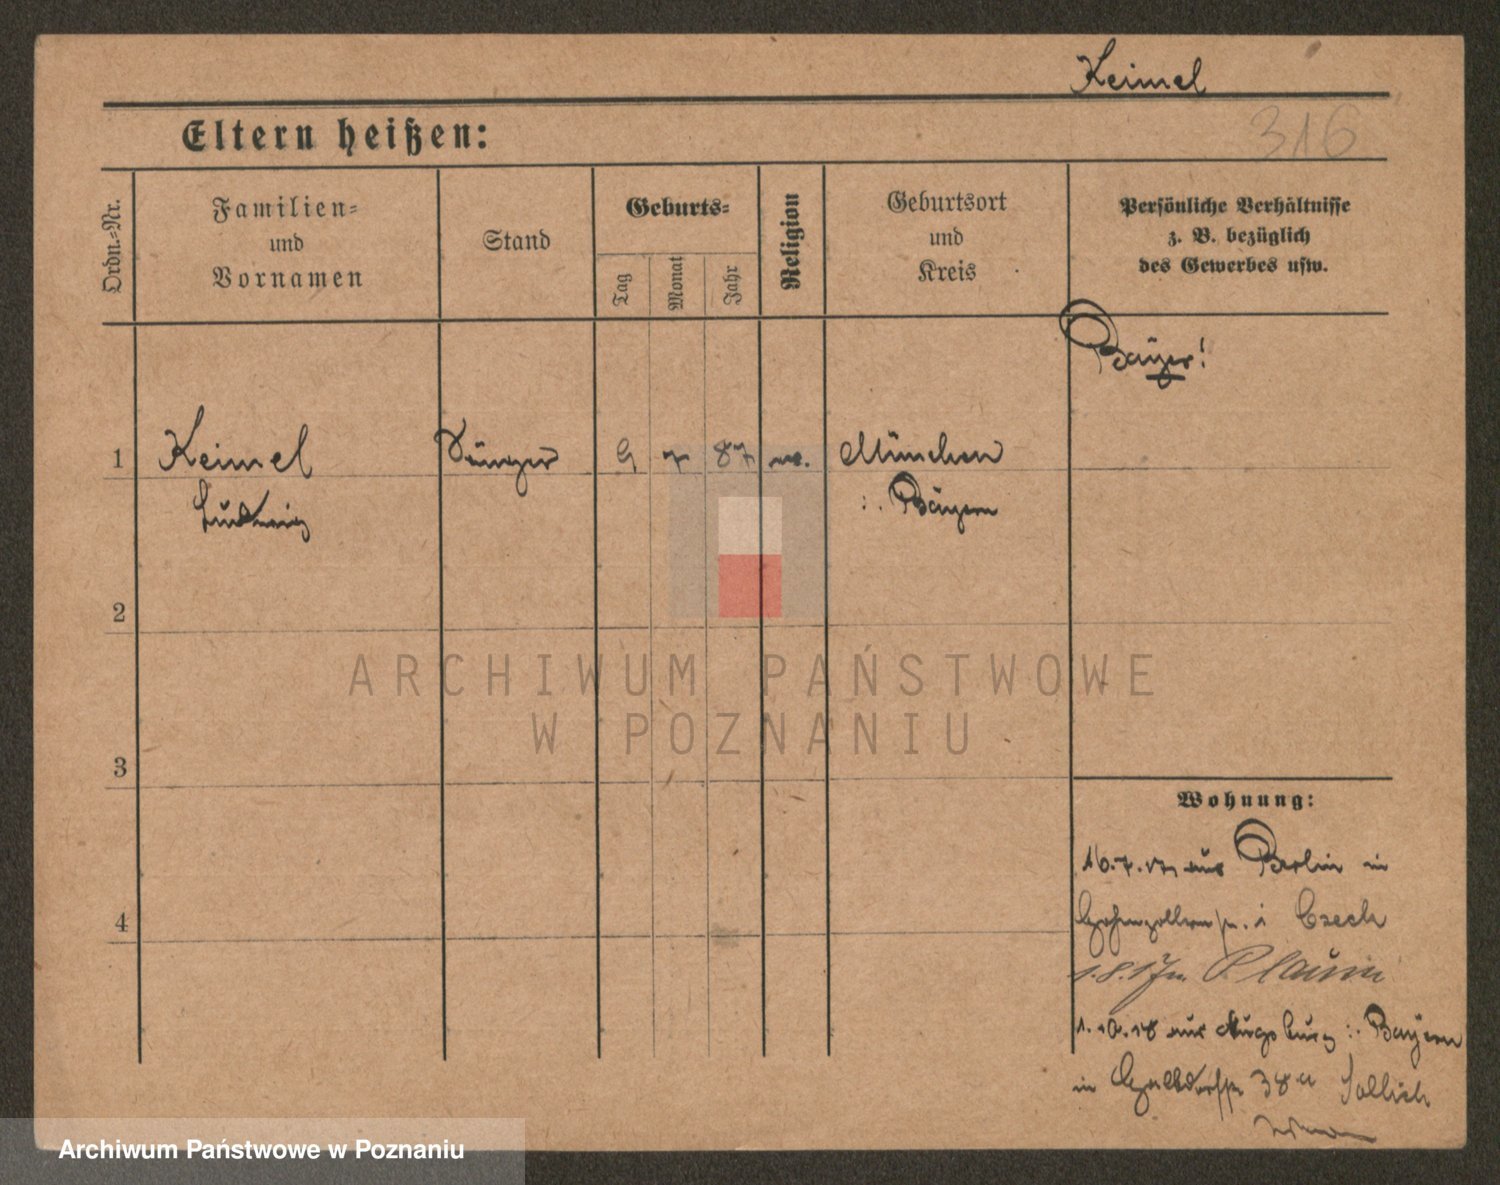 Keimel
316
Eltern heißen:
Ordn.-Nr.
Familien-
und
Vornamen
Stand
Geburts-
Tag
Monat
Jahr
Religion
Geburtsort
und
Kreis
Persönliche Verhältnisse
z. B. bezüglich
des Gewerbes usw.
Bayer!
1
Keimel
Sänger
9
7
87
München
Ludwig
Bayern
2
ARCHIWUM PAŃSTWOWE
W POZNANIU
3
Wohnung:
16.7.17 aus Berlin in
4
Hohenzollernstr. i Czech
1.8.17 n. Plauen
1.10.18 aus Augsburg Bayern
in 38
Archiwum Państwowe w Poznaniu